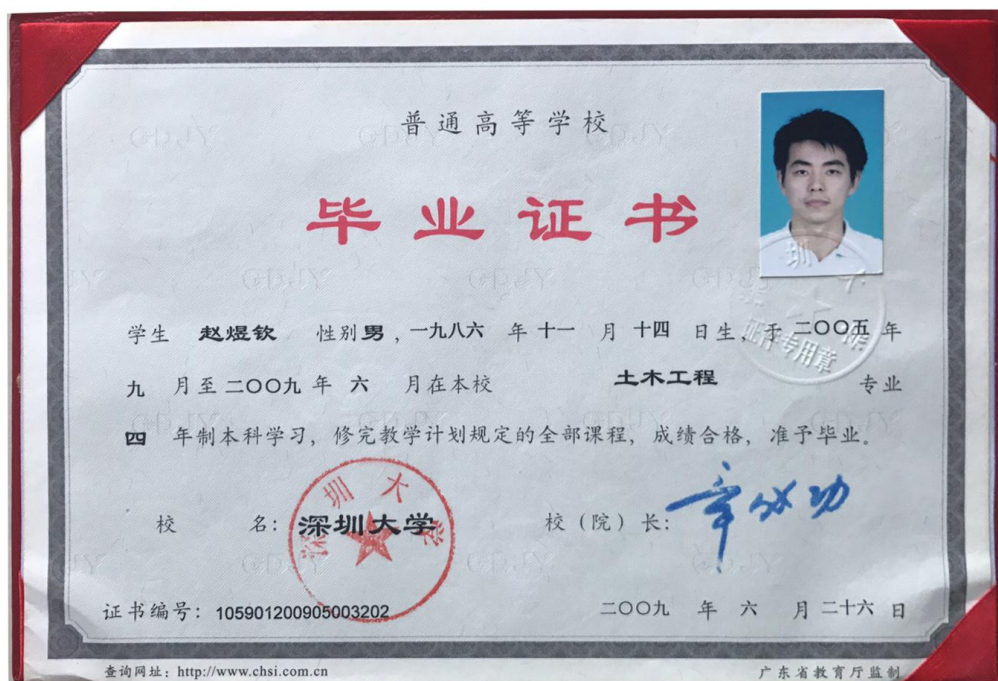 普通高等学校
毕业证书
学生 赵煜钦 性别男，一九八六 年 十一 月 十四 日生，于 二〇〇五 年
九 月至 二〇〇九 年 六 月在本校 土木工程 专业
四 年制本科学习，修完教学计划规定的全部课程，成绩合格，准予毕业。
校 名：深圳大学 校（院）长：章必功
深圳大学
证件专用章
证书编号：105901200905003202 二〇〇九 年 六 月 二十六 日
查询网址：http://www.chsi.com.cn 广东省教育厅监制